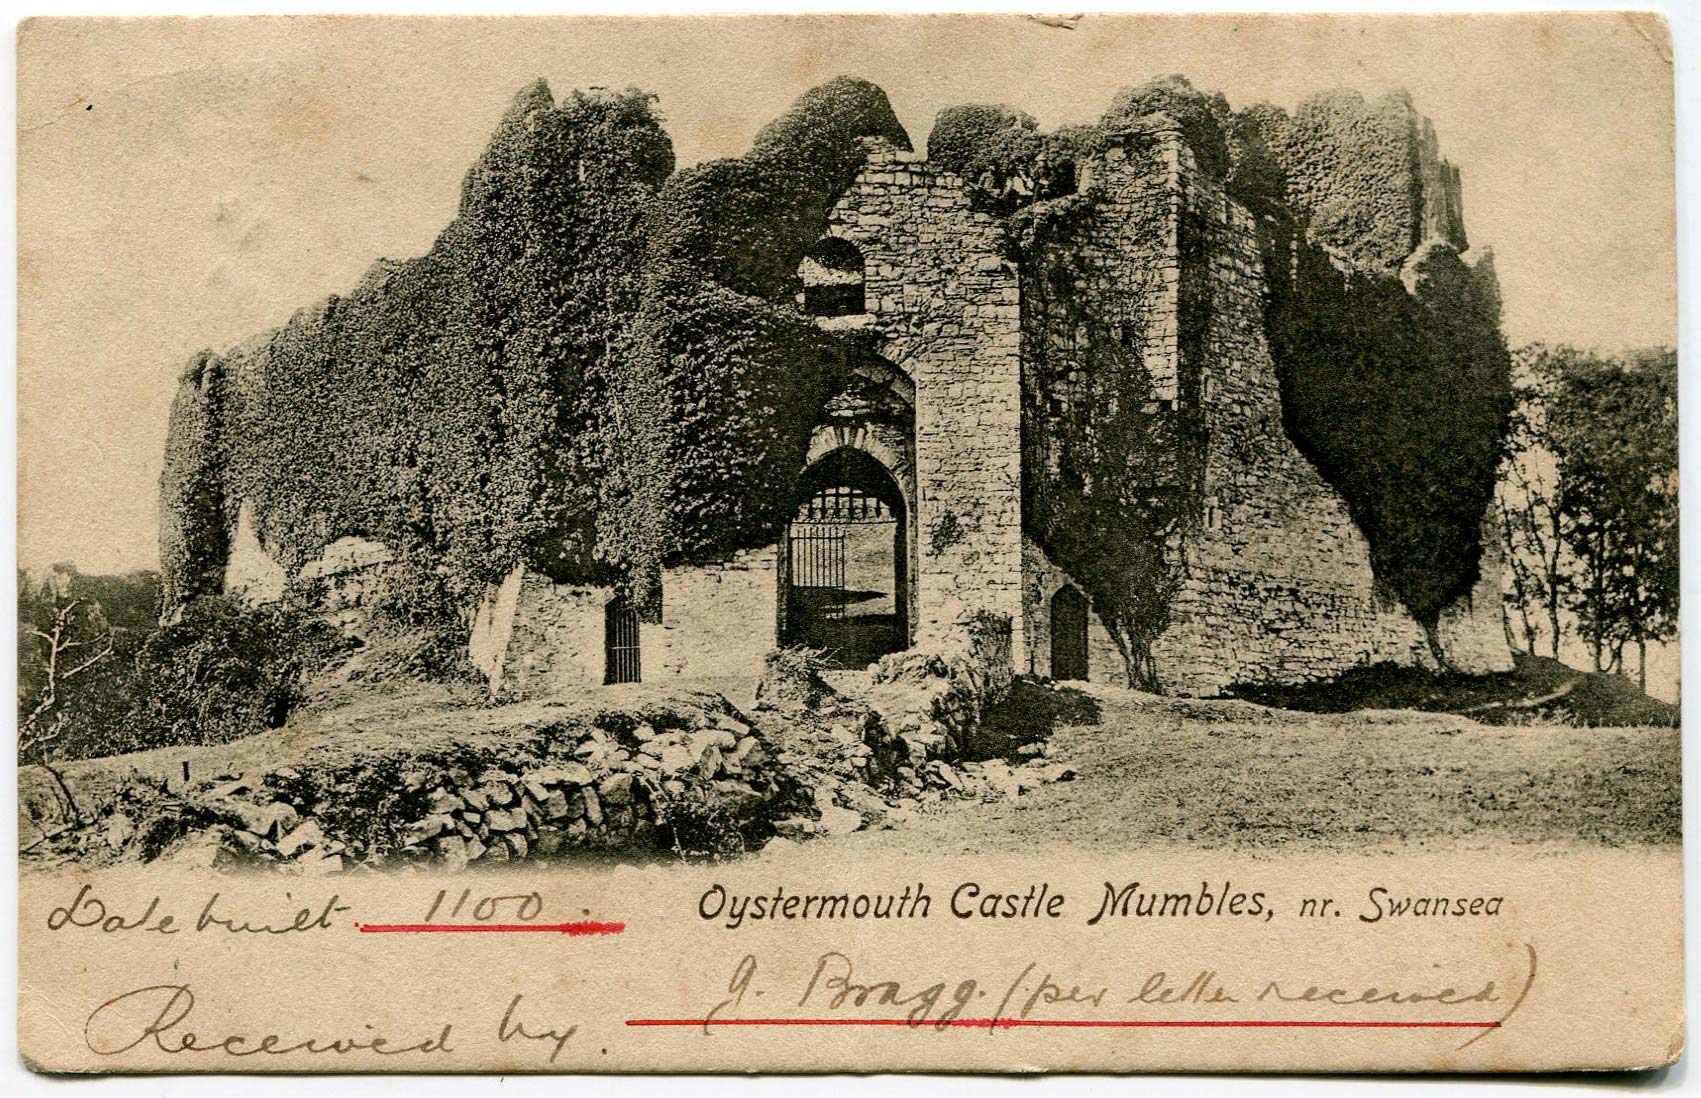 Date built. 1100.
Oystermouth Castle Mumbles, nr. Swansea
Received by. G. Bragg. (per letter received)